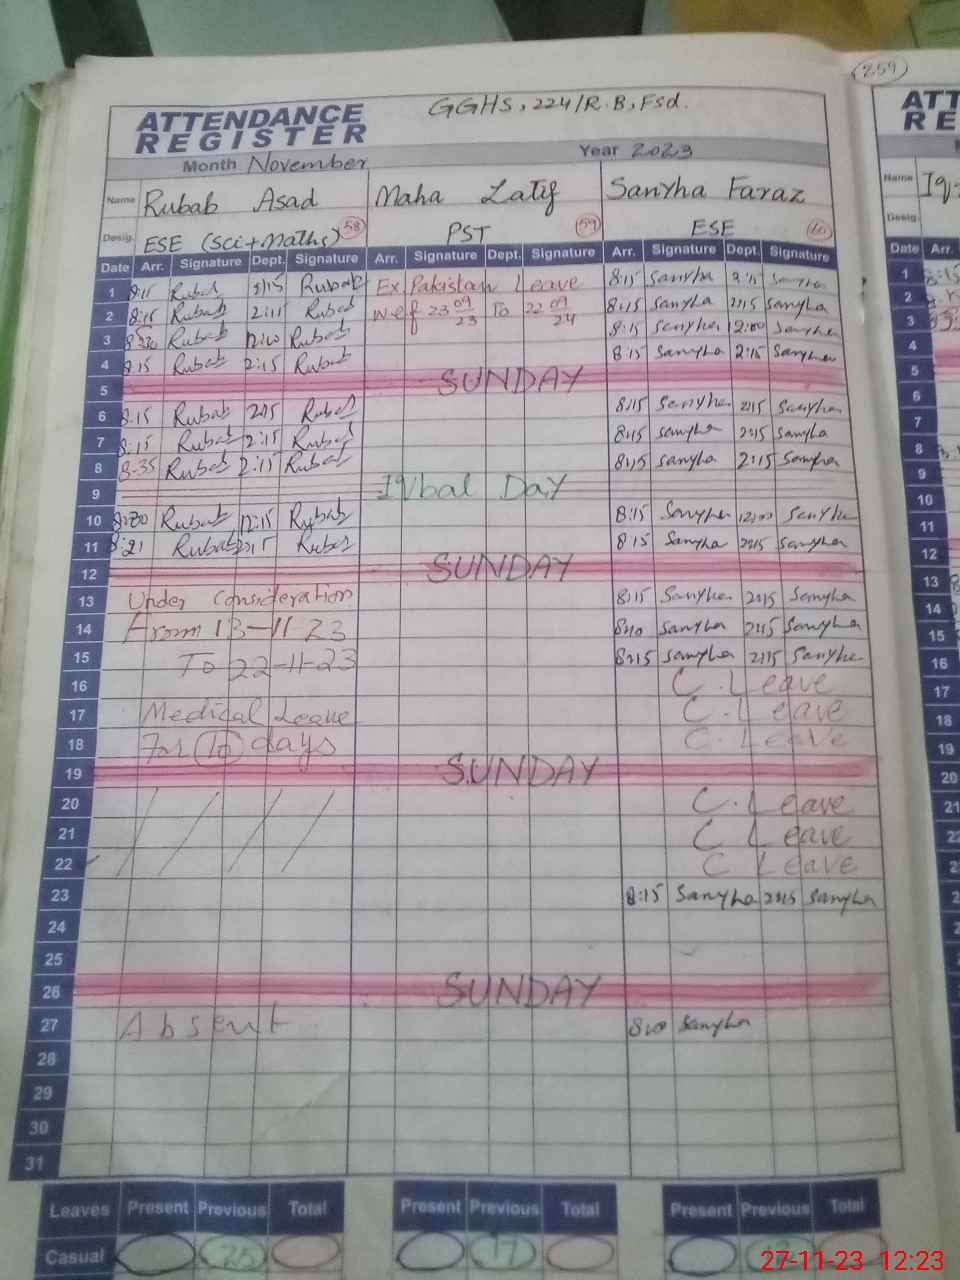 259
GGHS, 224/R.B, Fsd.
ATTENDANCE
REGISTER
Month November Year 2023
Name Rubab Asad Maha Latif Sanyha Faraz
Desig. ESE (Sci+Maths) 58 PST 59 ESE
Date Arr. Signature Dept. Signature Arr. Signature Dept. Signature Arr. Signature Dept. Signature
1 8:15 Rubab Rubab Ex Pakistan Leave 8:15 Sanyha 2:15 Sanyha
2 8:15 Rubab 2:15 Rubab w.e.f 23 09 23 To 22 09 24 8:15 Sanyha 2:15 Sanyha
3 Rubab 12:00 Rubab 8:15 Sanyha 12:00 Sanyha
4 8:15 Rubab 2:15 Rubab 8:15 Sanyha 2:15 Sanyha
5 SUNDAY
6 8:15 Rubab 2:15 Rubab 8:15 Sanyha 2:15 Sanyha
7 8:15 Rubab 2:15 Rubab 8:15 Sanyha 2:15 Sanyha
8 8:35 Rubab 2:15 Rubab 8:15 Sanyha 2:15 Sanyha
9 Iqbal Day
10 Rubab 12:15 Rubab 8:15 Sanyha 12:00 Sanyha
11 8:21 Rubab 2:15 Rubab 8:15 Sanyha 2:15 Sanyha
12 SUNDAY
13 Under consideration 8:15 Sanyha 2:15 Sanyha
14 From 13-11-23 8:10 Sanyha 2:15 Sanyha
15 To 22-11-23 8:15 Sanyha 2:15 Sanyha
16 C. Leave
17 Medical Leave C. Leave
18 For 10 days C. Leave
19 SUNDAY
20 C. Leave
21 C Leave
22 C Leave
23 8:15 Sanyha 2:15 Sanyha
24
25
26 SUNDAY
27 Absent 8:10 Sanyha
28
29
30
31
Leaves Present Previous Total Present Previous Total Present Previous Total
Casual 25 17
ATT
RE
Name
Desig.
Date Arr.
1
2
3
4
5
6
7
8
9
10
11
12
13
14
15
16
17
18
19
20
21
27-11-23 12:23